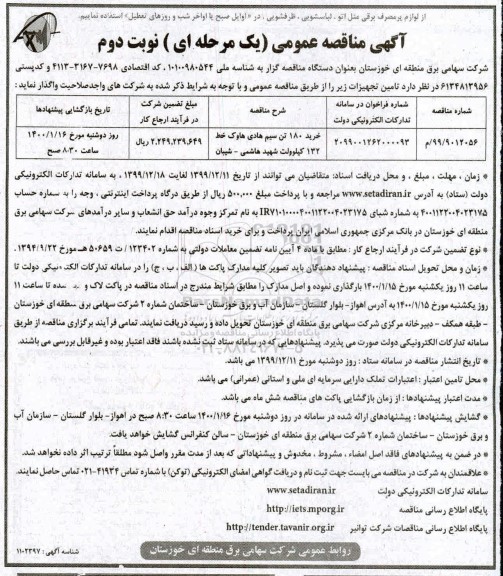 از لوازم پرمصرف برقی مثل اتو ، لباسشویی ، ظرفشویی ، در «اوایل صبح یا اواخر شب و روزهای تعطیل» استفاده نماییم.
آگهی مناقصه عمومی (یک مرحله ای ) نوبت دوم
شرکت سهامی برق منطقه ای خوزستان بعنوان دستگاه مناقصه گزار به شناسه ملی ۱۰۱۰۰۹۸۰۵۴۴ ، کد اقتصادی ۷۶۹۸-۳۱۶۷-۴۱۱۳ و کدپستی
۶۱۳۴۸۱۳۹۵۶ در نظر دارد تامین تجهیزات زیر را از طریق مناقصه عمومی و با توجه به شرایط ذکر شده به شرکت های واجدصلاحیت واگذار نماید :
شماره مناقصه
شماره فراخوان در سامانه تدارکات الکترونیکی دولت
شرح مناقصه
مبلغ تضمین شرکت در فرآیند ارجاع کار
تاریخ بازگشایی پیشنهادها
۹۹/۹۰۱۲۰۵۶/م
۲۰۹۹۰۰۱۲۶۲۰۰۰۰۹۳
خرید ۱۸۰ تن سیم هادی هاوک خط ۱۳۲ کیلوولت شهید هاشمی - شیبان
۲,۲۴۹,۲۳۹,۶۴۹ ریال
روز دوشنبه مورخ ۱۴۰۰/۱/۱۶ ساعت ۸:۳۰ صبح
* زمان ، مهلت ، مبلغ ، و محل دریافت اسناد: متقاضیان می توانند از تاریخ ۱۳۹۹/۱۲/۱۱ لغایت ۱۳۹۹/۱۲/۱۸ ، به سامانه تدارکات الکترونیکی
دولت (ستاد) به آدرس www.setadiran.ir مراجعه و با پرداخت مبلغ ۵۰۰,۰۰۰ ریال از طریق درگاه پرداخت اینترنتی ، وجه را به شماره حساب
۴۰۰۱۱۲۲۰۰۴۰۲۳۱۷۵ به شماره شبای IR۷۱۰۱۰۰۰۰۴۰۰۱۱۲۲۰۰۴۰۲۳۱۷۵ به نام تمرکز وجوه درآمد حق انشعاب و سایر درآمدهای شرکت سهامی برق
منطقه ای خوزستان در بانک مرکزی جمهوری اسلامی ایران پرداخت و برای خرید اسناد مناقصه اقدام نمایند.
* نوع تضمین شرکت در فرآیند ارجاع کار : مطابق با ماده ۴ آیین نامه تضمین معاملات دولتی به شماره ۱۲۳۴۰۲ / ت ۵۰۶۵۹ هـ مورخ ۱۳۹۴/۹/۲۲ .
* زمان و محل تحویل اسناد مناقصه : پیشنهاد دهندگان باید تصویر کلیه مدارک پاکت ها ( الف ، ب ، ج) را در سامانه تدارکات الکترونیکی دولت تا
ساعت ۱۱ روز یکشنبه مورخ ۱۴۰۰/۱/۱۵ بارگذاری نموده و اصل مدارک را مطابق شرایط مندرج در اسناد مناقصه در پاکت لاک و شده تا ساعت ۱۱
روز یکشنبه مورخ ۱۴۰۰/۱/۱۵ به آدرس اهواز- بلوار گلستان - سازمان آب و برق خوزستان - ساختمان شماره ۲ شرکت سهامی برق منطقه ای خوزستان
- طبقه همکف - دبیرخانه مرکزی شرکت سهامی برق منطقه ای خوزستان تحویل داده و رسید دریافت نمایند. تمامی فرآیند برگزاری مناقصه از طریق
سامانه تدارکات الکترونیکی دولت صورت می پذیرد. پیشنهادهایی که در سامانه ستاد ثبت نشده باشند فاقد اعتبار بوده و غیرقابل بررسی می باشند.
* تاریخ انتشار مناقصه در سامانه ستاد : روز دوشنبه مورخ ۱۳۹۹/۱۲/۱۱ می باشد.
* محل تامین اعتبار : اعتبارات تملک دارایی سرمایه ای ملی و استانی (عمرانی) می باشد.
* مدت اعتبار پیشنهادها : از زمان بازگشایی پاکت های مناقصه شش ماه می باشد.
* گشایش پیشنهادها : پیشنهادهای ارائه شده در سامانه در روز دوشنبه مورخ ۱۴۰۰/۱/۱۶ ساعت ۸:۳۰ صبح در اهواز- بلوار گلستان - سازمان آب
و برق خوزستان - ساختمان شماره ۲ شرکت سهامی برق منطقه ای خوزستان - سالن کنفرانس گشایش خواهد یافت.
* در ضمن به پیشنهادهای فاقد اصل امضاء ، مشروط ، مخدوش و پیشنهاداتی که بعد از مدت مقرر واصل شود مطلقاً ترتیب اثر داده نخواهد شد.
* علاقمندان به شرکت در مناقصه می بایست جهت ثبت نام و دریافت گواهی امضای الکترونیکی (توکن) با شماره تماس ۴۱۹۳۴-۰۲۱ تماس حاصل نمایند.
سامانه تدارکات الکترونیکی دولت www.setadiran.ir
پایگاه اطلاع رسانی مناقصه http://iets.mporg.ir
پایگاه اطلاع رسانی مناقصات شرکت توانیر http://tender.tavanir.org.ir
روابط عمومی شرکت سهامی برق منطقه ای خوزستان
شناسه آگهی : ۱۱۰۲۳۹۷